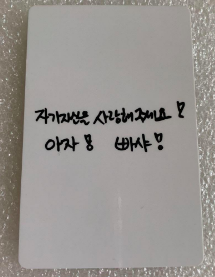 자기자신을 사랑해주세요!
아자! 빠샤!